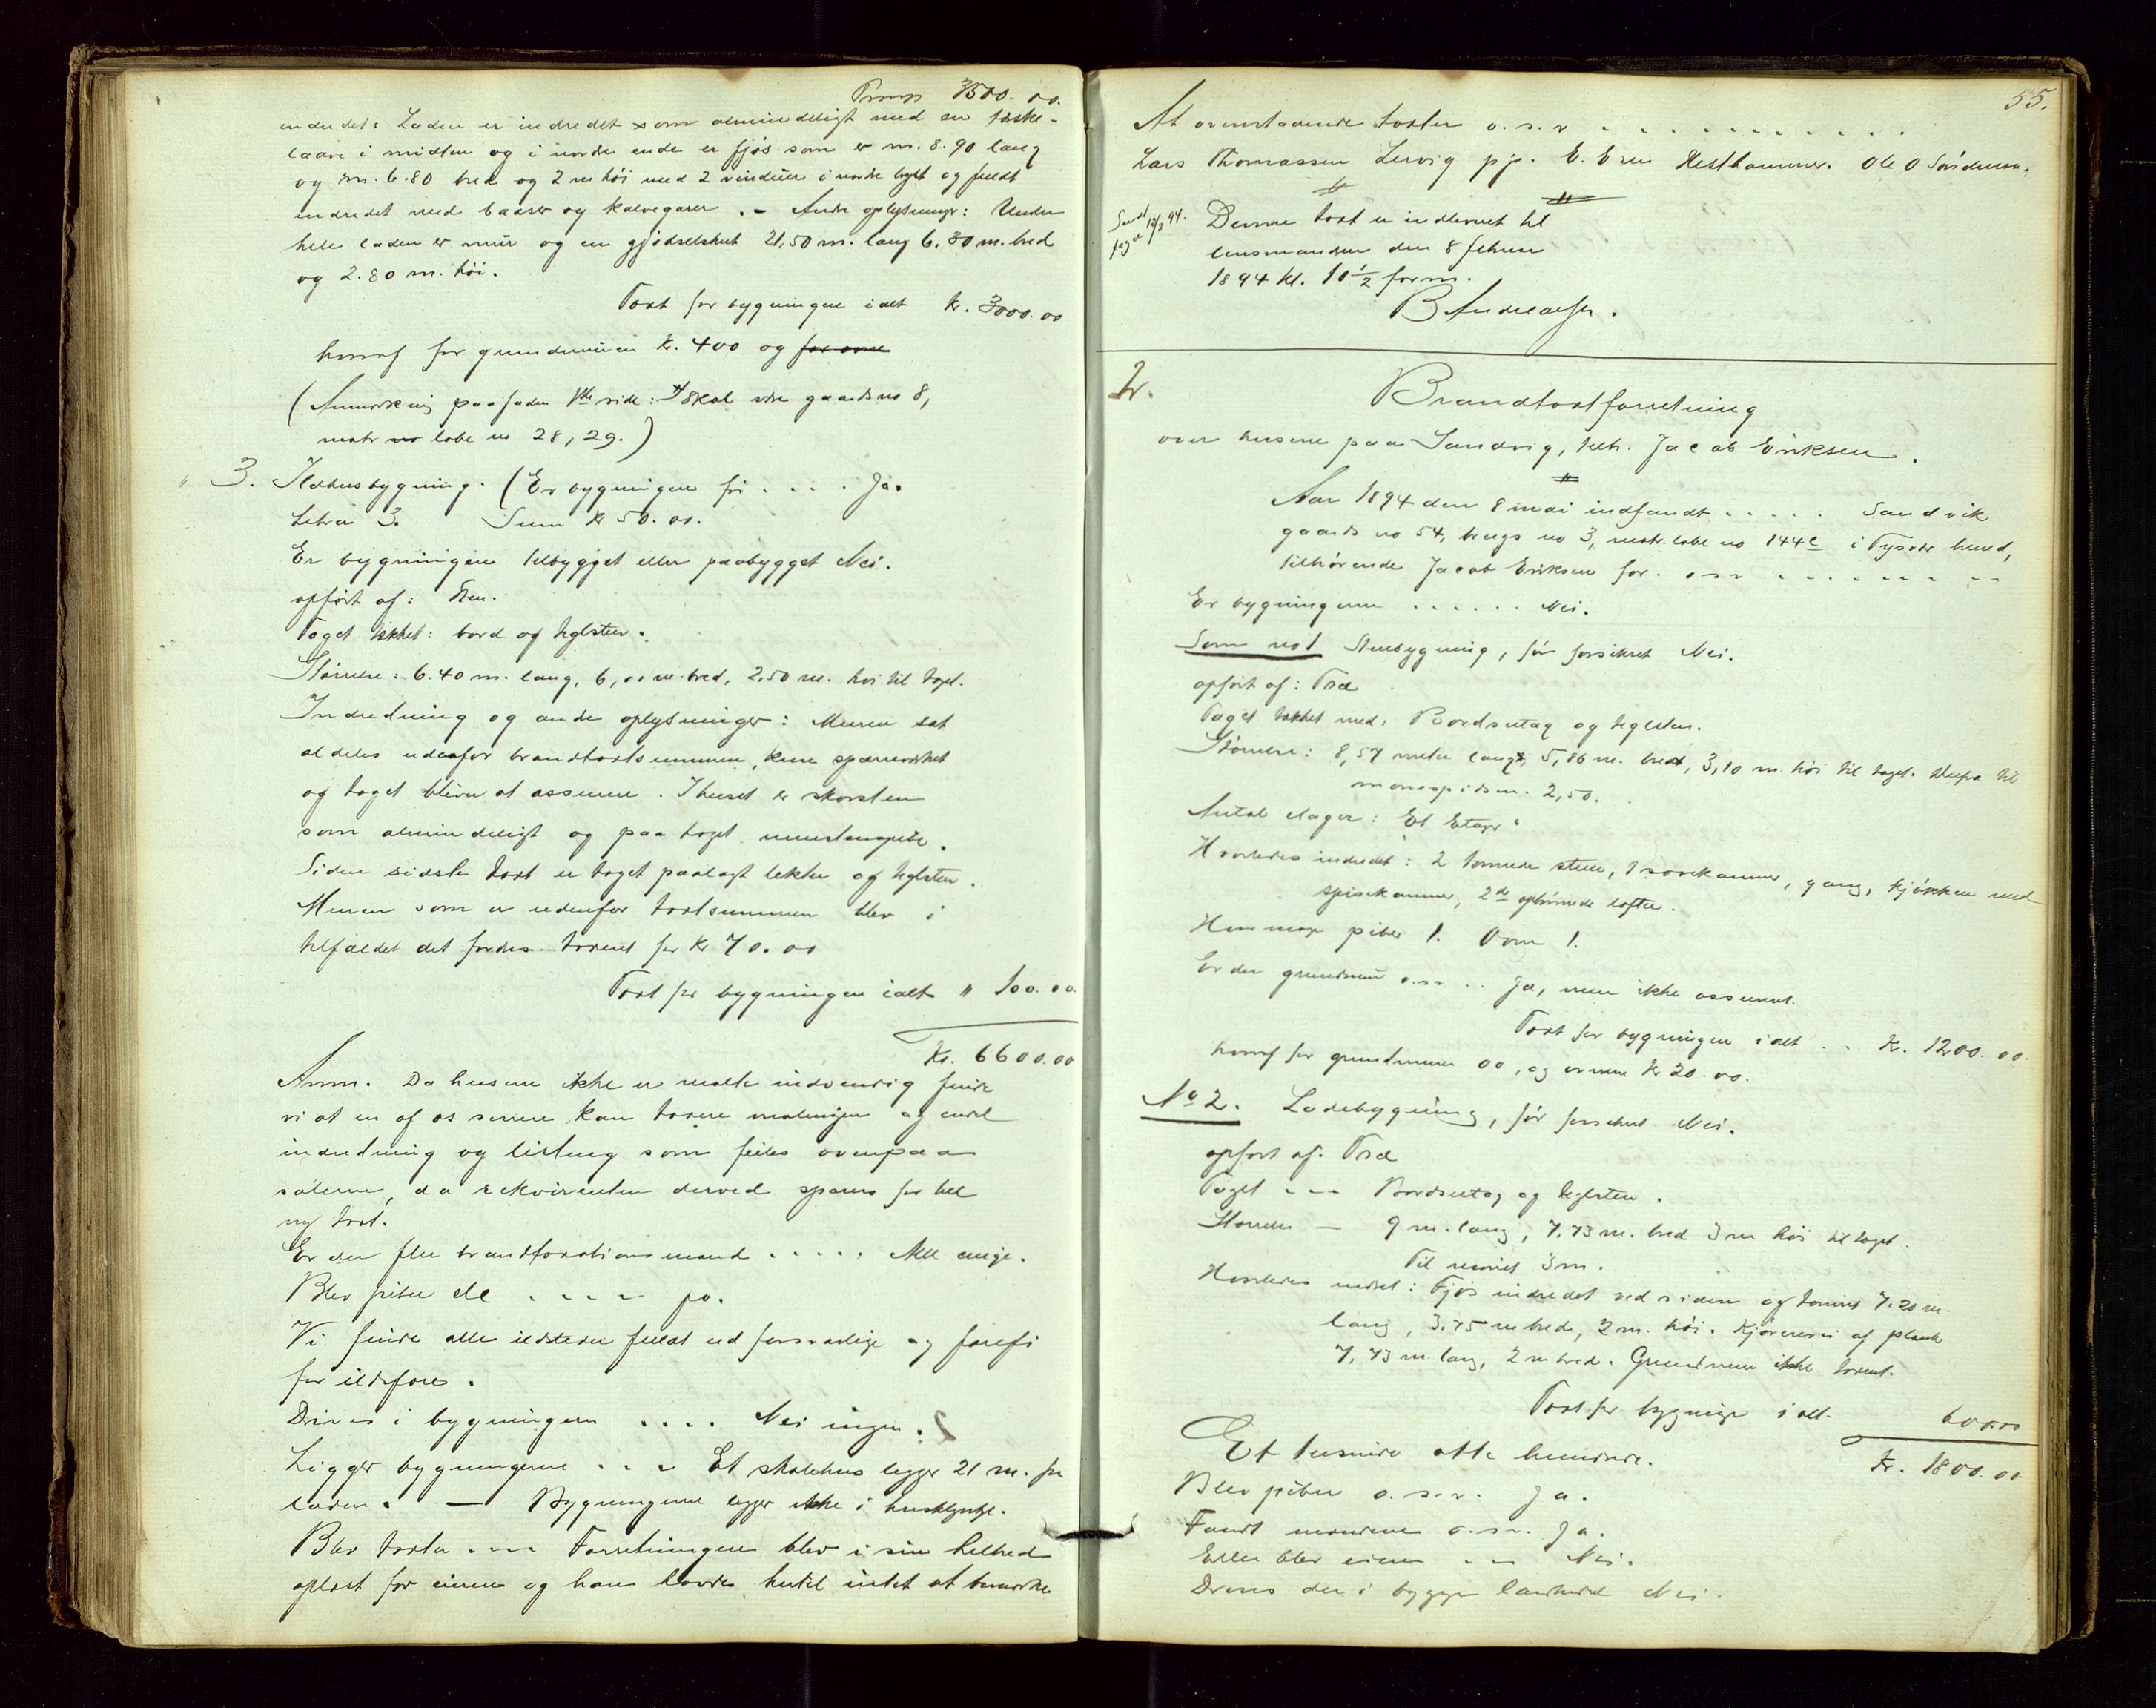 3500.00.
indredet: Laden er indredet som almindeligt med en tærske-
laave i midten og i nordre ende er fjøs som er m. 8.90 lang
og m. 6.80 bred og 2 m høi med 2 vinduer i nordre bygt og fuldt
indredet med baaser og kalvegarer. – Andre oplysninger: Under
hele laden er mur og en gjødselskut 21,50 m. lang 6.30 m. bred
og 2.80 m. høi.
Taxt for bygningen ialt kr. 3000.00
hvoraf for grundmuren kr. 400 og for ovne
(Anmerkning paa siden skal være gaards no 8,
matr no løbe no 28, 29.)
" 3. Ildhusbygning. (Er bygningen før . . . . Ja.
Litra 3. Sum kr 50.00.
Er bygningen tilbygget eller paabygget Nei.
opført af: Sten.
Taget tækket: bord og teglsten.
Størrelse: 6.40 m. lang, 6,00 m. bred, 2,50 m. høi til taget.
Indredning og andre oplysninger: Muren sat
aldeles udenfor brandtaxtsummen, kun sperreverket
og taget bliver at assurere. I huset er skorsten
som almindeligt og paa taget murstenspibe.
Siden sidste taxt er taget paalagt lekter og teglsten.
Muren som er udenfor taxtsummen blev i
tilfældet det fordres taxeret for kr 70.00
Taxt for bygningen ialt " 100.00.
Kr. 6600.00
Anm. Da husene ikke er malte indvendig finde
vi at en af os senere kan taxere malingen og endel
indredning og listing som feiles ovenpaa
salerne, da rekvirenten derved spares for hel
ny taxt.
Er der flere brandtaxationsmænd . . . . . Alle enige.
Blev piber ell . . . . . ja.
Vi finde alle ildsteder fuldt ud forsvarlige og farefri
for ildsfare.
Drives i bygningen . . . . Nei ingen.
Ligger bygningerne . . . Et skolehus ligger 21 m. fra
laden. — Bygningerne ligger ikke i husklynge.
Blev taxten . . . Forretningen blev i sin helhed
oplæst for eieren og han havde hertil intet at bemerke
55.
At ovenstaaende taxter o.s.v . . . . . . . . . . .
Lars Thomassen Lervig pp. E. Eriksen Hesthammer. Ole O Søndenaa.
Sendt 12/2 94.
fogd
Denne taxt er indleveret til
lensmanden den 8 februar
1894 kl. 10 1/2 form.
B Andreassen.
2.
Brandtaxtforretning
over husene paa Sandvig, tilh. Jacob Eriksen.
Aar 1894 den 8 mai indfandt . . . . . Sandvik
gaards no 54, brugs no 3, matr. løbe no 144c i Tysvær herred,
tilhørende Jacob Eriksen for. o s v . . . . . . . .
Er bygningerne . . . . . . Nei.
Som no 1 Stuebygning, før forsikret Nei.
opført af: Træ
Taget tækket med: Bordsutag og teglsten.
Størrelse: 8,57 meter langt, 5,86 m. bredt, 3,10 m. høi til taget. derfra til
mønespidsen. 2,50.
Antal etager: Et Etage.
Hvorledes indredet: 2 tømrede stuer, 1 sovekammer, gang, kjøkken med
spisekammer, 2de optømrede lofter.
Hvormange piber 1. Ovne 1.
Er der grundmur o.s.v . . Ja, men ikke assureret.
Taxt for bygningen ialt . . kr. 1200.00.
hvoraf for grundmuren 00, og ovnene kr 20.00.
No 2. Ladebygning, før forsikret Nei.
opført af. Træ
Taget . . . Bordsutag og teglsten.
Størrelse — 9 m. lang, 7.73 m. bred 3 m høi til taget.
Til mønet 3 m.
Hvorledes indret: Fjøs indredet ved siden og tømret 7.20 m.
lang, 3.75 m bred, 2 m. høi. Kjørevei af plank
7,73 m. lang, 2 m bred. Grundmuren ikke taxeret.
Taxt for bygningen ialt 600.00
Et tusinde otte hundrede. Kr. 1800.00.
Blev piber o.s.v. Ja.
Fandt mændene o.s.v. Ja.
Eller blev eieren . . . Nei.
Drives der i bygn landhandel Nei.